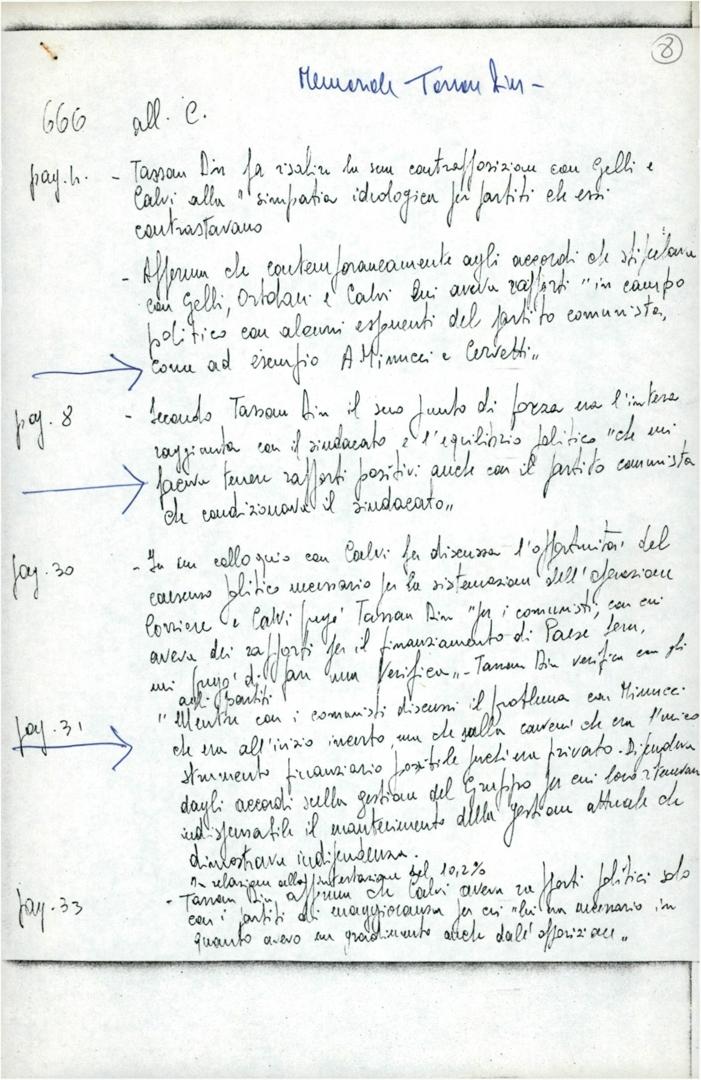 8
Memoriale - Tassan Din -
666 all. C.
pag. 4. - Tassan Din fa risalire la sua contrapposizione con Gelli e
Calvi alla "simpatia ideologica per partiti che essi
contrastavano
- Afferma che contemporaneamente agli accordi che stipulava
con Gelli, Ortolani e Calvi lui aveva rapporti "in campo
politico con alcuni esponenti del partito comunista,
come ad esempio A Minucci e Cervetti"
pag. 8 - Secondo Tassan Din il suo punto di forza era l'intesa
raggiunta con il sindacato e l'equilibrio politico "che mi
faceva tenere rapporti positivi anche con il partito comunista
che condizionava il sindacato"
pag. 30 - In un colloquio con Calvi fu discussa l'opportunità del
consenso politico necessario per la sistemazione dell'operazione
Corriere e Calvi pregò Tassan Din "per i comunisti, con cui
aveva dei rapporti per il finanziamento di Paese Sera,
mi pregò di fare una verifica" - Tassan Din verifica con gli
agli partiti
pag. 31 "Mentre con i comunisti discussi il problema con Minucci
che era all'inizio incerto, ma che sulla che era l'unico
strumento finanziario possibile perché era privato. Dipendeva
dagli accordi sulla gestione del Gruppo per cui loro ritenevano
indispensabile il mantenimento della gestione attuale che
dimostrava indipendenza.
In relazione alla intestazione del 10,2%
pag. 33 - Tassan Din afferma che Calvi aveva rapporti politici solo
con i partiti di maggioranza per cui "lui era necessario in
quanto avevo un gradimento anche dall'opposizione"